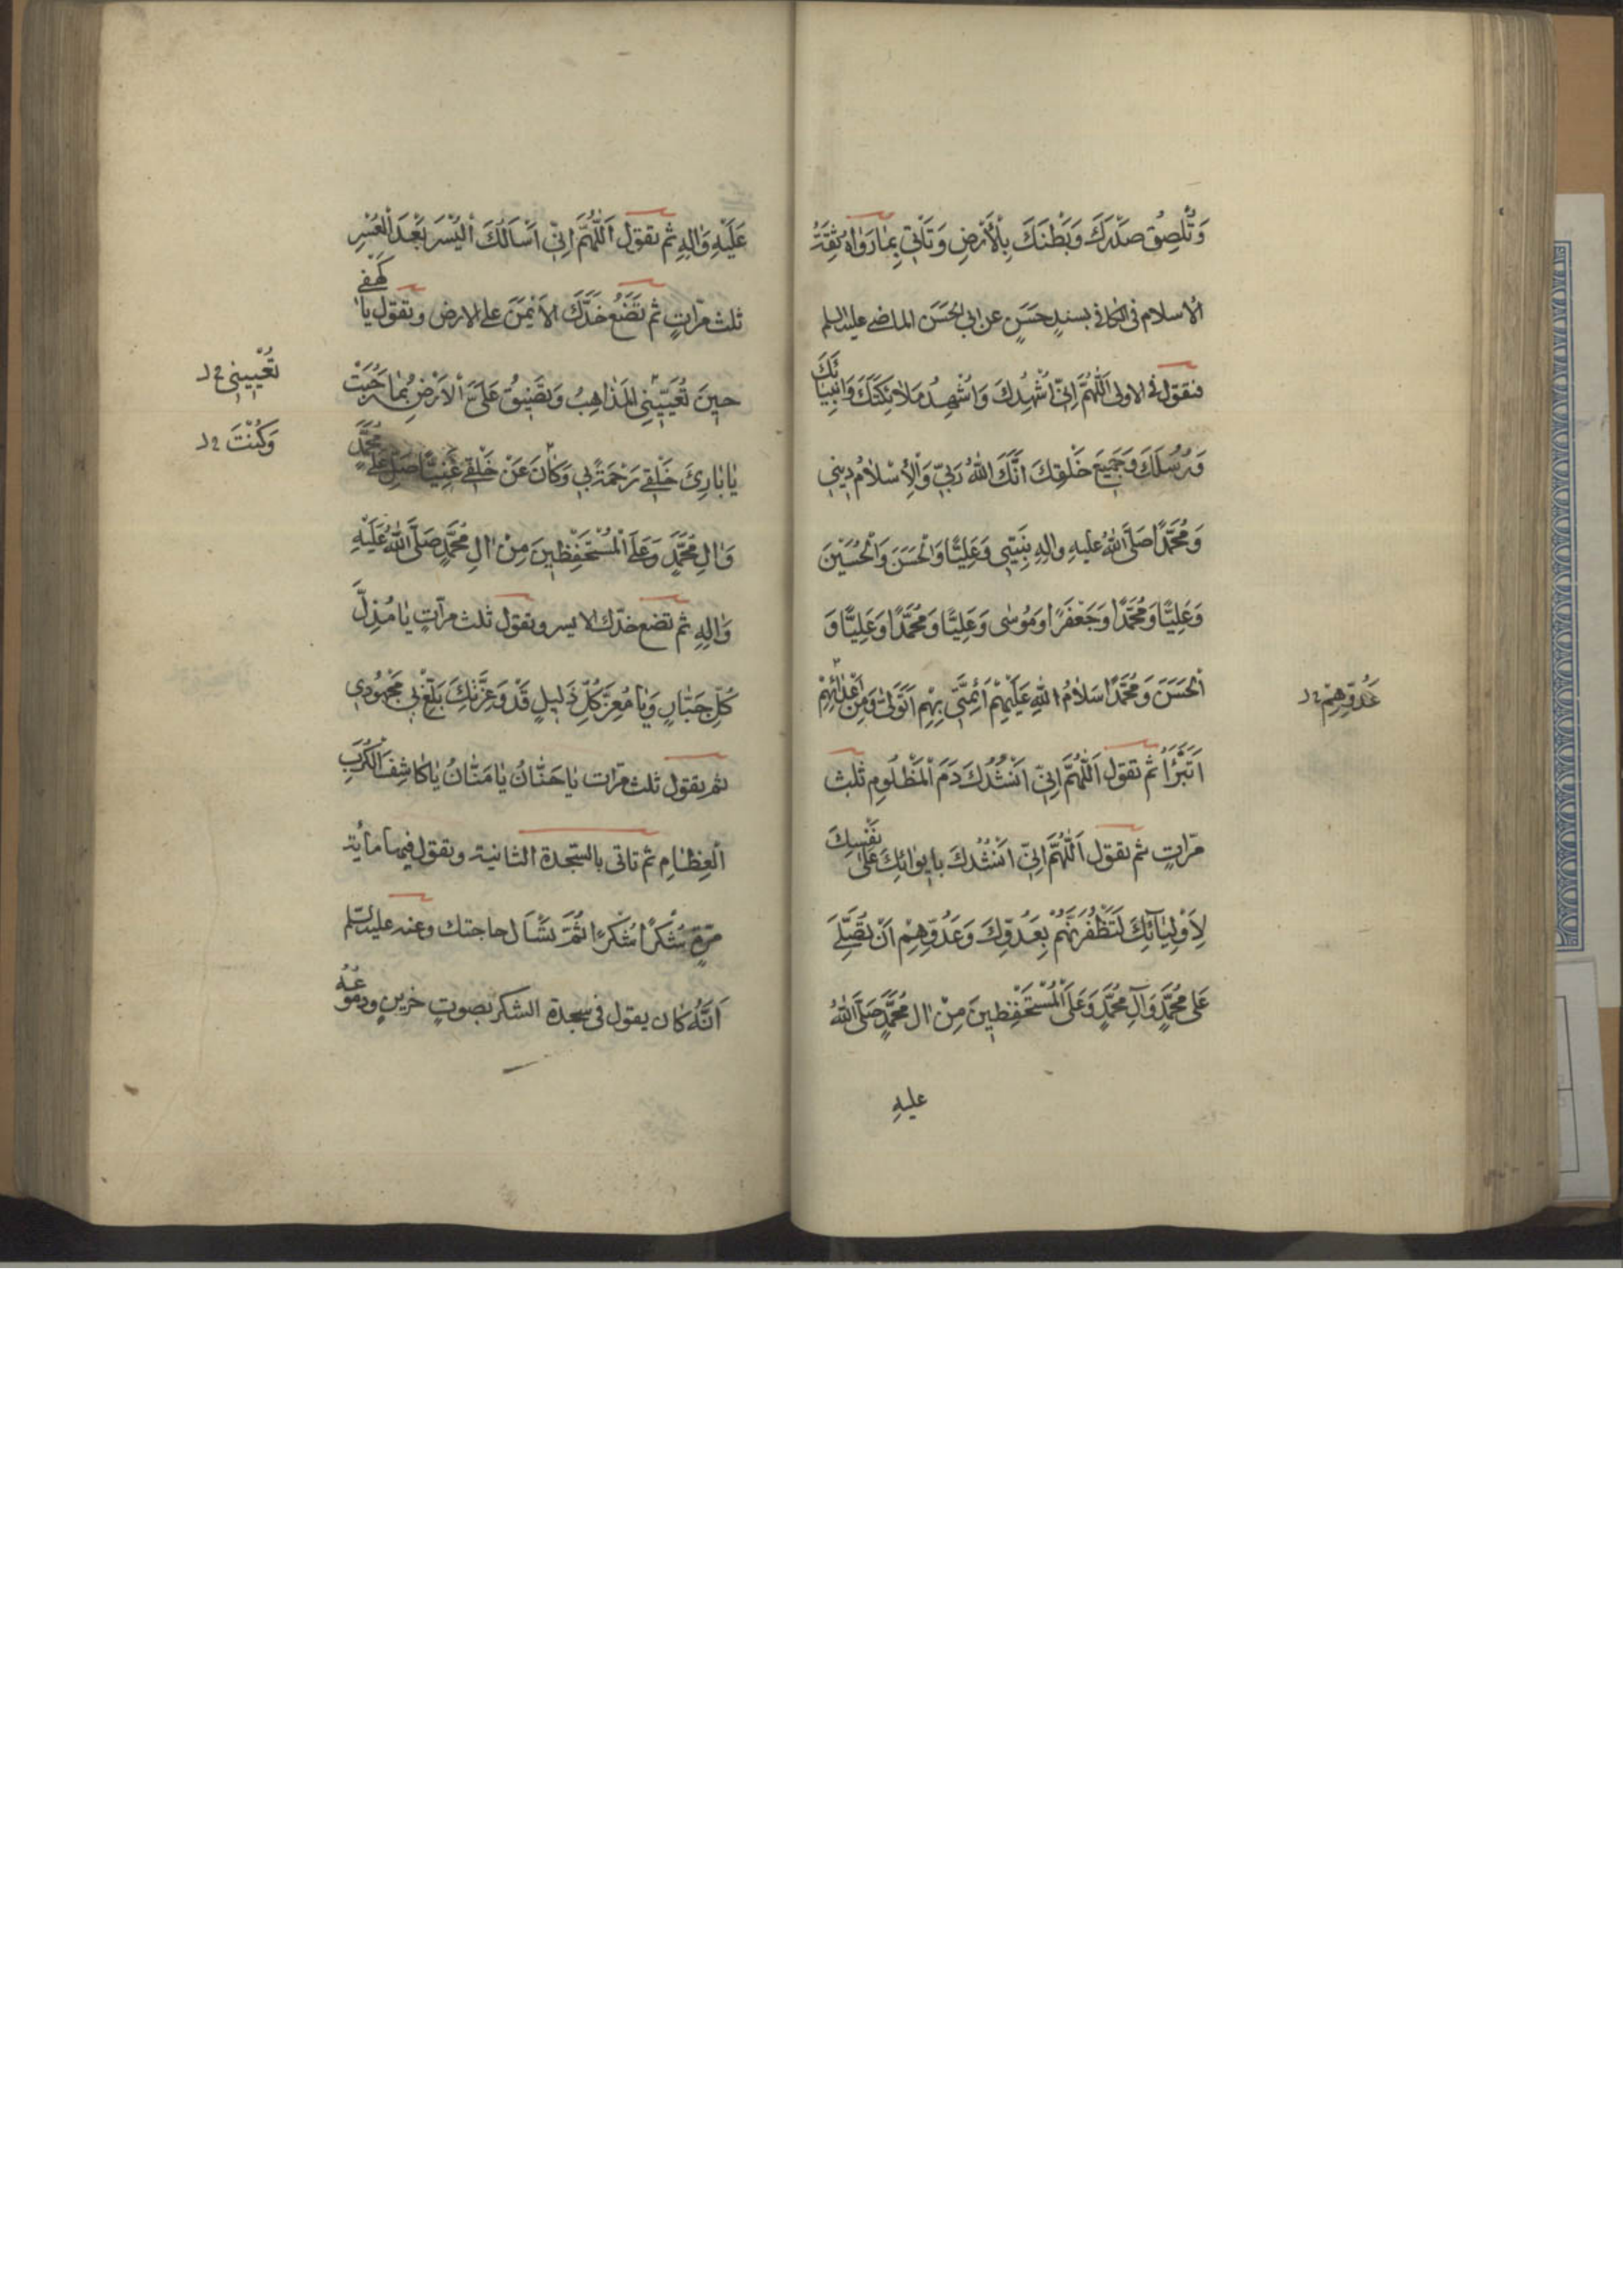 وَتُلْصِقُ صَدْرَكَ وَبَطْنَكَ بِالْأَرْضِ وَتَأْتِي بِمَا رَوَاهُ ثِقَةُ
الْاسلام فى الكافى بسندٍ حَسَنٍ عن ابى الحَسَن الماضى عليه السلم
فتقول فى الاولى اَللّٰهُمَّ اِنّى اُشْهِدُكَ وَاُشْهِدُ مَلَائِكَتَكَ وَاَنْبِيَائَكَ
وَرُسُلَكَ وَجَمِيعَ خَلْقِكَ اَنَّكَ اللّٰهُ رَبّى وَالْاِسْلَامُ دِينِى
وَمُحَمَّدًا صَلَّى اللّٰهُ عليهِ والِهِ نَبِيّى وَعَلِيًّا وَالْحَسَنَ وَالْحُسَيْنَ
وَعَلِيًّا وَمُحَمَّدًا وَجَعْفَرًا وَمُوسٰى وَعَلِيًّا وَمُحَمَّدًا وَعَلِيًّا وَ
الْحَسَنَ وَمُحَمَّدًا سَلَامُ اللّٰهِ عَلَيْهِمْ اَئِمَّتِى بِهِمْ اَتَوَلّٰى وَمِنْ اَعْدَائِهِمْ
عَدُوِّهِمْ خ ل
اَتَبَرَّأُ ثُمَّ تقول اَللّٰهُمَّ اِنّى اَنْشُدُكَ دَمَ الْمَظْلُومِ ثلٰث
مرّاتٍ ثم تقول اَللّٰهُمَّ اِنّى اَنْشُدُكَ بِايوَائِكَ عَلٰى نَفْسِكَ
لِاَوْلِيَآئِكَ لَتُظْفِرَنَّهُمْ بِعَدُوِّكَ وَعَدُوِّهِمْ اَنْ تُصَلِّىَ
عَلٰى مُحَمَّدٍ وَآلِ مُحَمَّدٍ وَعَلَى الْمُسْتَحْفَظِينَ مِنْ اٰلِ مُحَمَّدٍ صَلَّى اللّٰهُ
عليهِ
عَلَيْهِ وَاٰلِهِ ثم تقول اَللّٰهُمَّ اِنّى اَسْاَلُكَ الْيُسْرَ بَعْدَ الْعُسْرِ
ثلث مرّاتٍ ثم تَضَعُ خَدَّكَ الْاَيْمَنَ على الارض وتقول يَا كَهْفى
حينَ تُعْيِينِى الْمَذَاهِبُ وَتَضِيقُ عَلَىَّ الْاَرْضُ بِمَا رَحُبَتْ
تُعْيِينِى خ ل
يَا بَارِئَ خَلْقِى رَحْمَةً بِى وَكَانَ عَنْ خَلْقِى غَنِيًّا صَلِّ عَلٰى مُحَمَّدٍ
وَكُنْتَ خ ل
وَاٰلِ مُحَمَّدٍ وَعَلَى الْمُسْتَحْفَظِينَ مِنْ اٰلِ مُحَمَّدٍ صَلَّى اللّٰهُ عَلَيْهِ
وَاٰلِهِ ثم تضع خدّك الايسر وتقول ثلث مرّاتٍ يَا مُذِلَّ
كُلِّ جَبَّارٍ وَيَا مُعِزَّ كُلِّ ذَلِيلٍ قَدْ وَعِزَّتِكَ بَلَغَ بِى مَجْهُودِى
ثم تقول ثلث مرّات يَا حَنَّانُ يَا مَنَّانُ يَا كَاشِفَ الْكُرَبِ
الْعِظَامِ ثم تاتى بالسّجدة الثانية وتقول فيها مأية
مرّةٍ شُكْرًا شُكْرًا ثُمَّ تَسْاَل حاجتك وعنه عليه السّلم
اَنَّهُ كان يقول فى سجدة الشكر بصوتٍ حزينٍ ودموعُهُ